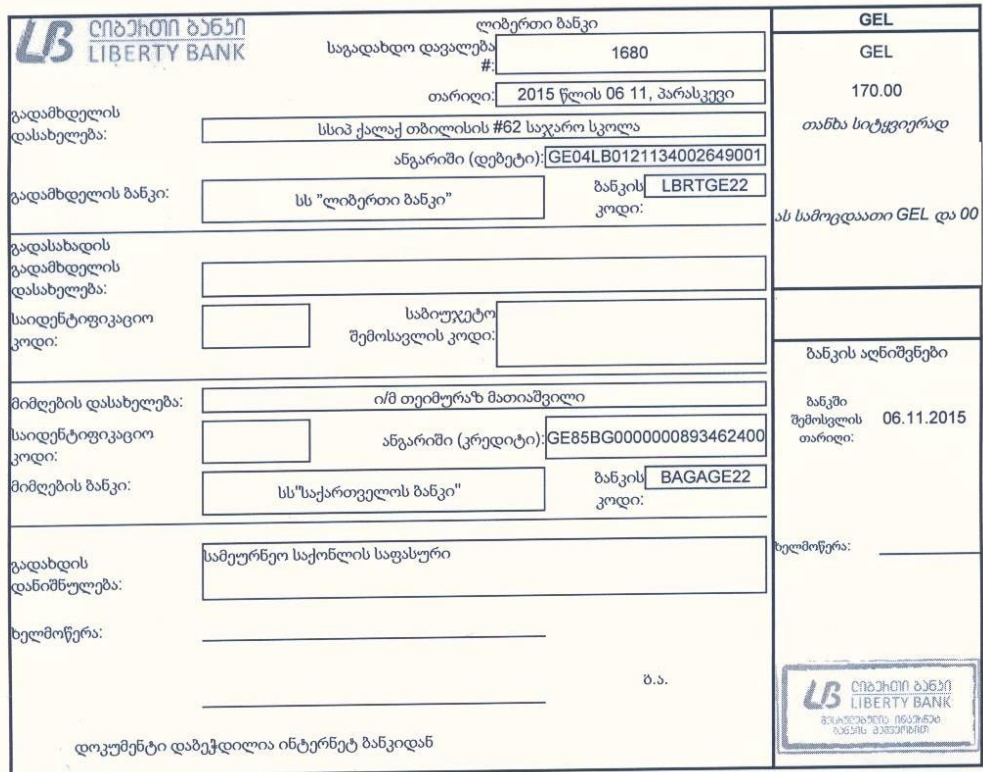 ლიბერთი ბანკი
LIBERTY BANK
ლიბერთი ბანკი
საგადახდო დავალება #: 1680
თარიღი: 2015 წლის 06 11, პარასკევი
გადამხდელის დასახელება: სსიპ ქალაქ თბილისის #62 საჯარო სკოლა
ანგარიში (დებეტი): GE04LB0121134002649001
გადამხდელის ბანკი: სს "ლიბერთი ბანკი"
ბანკის კოდი: LBRTGE22
გადასახადის გადამხდელის დასახელება:
საიდენტიფიკაციო კოდი:
საბიუჯეტო შემოსავლის კოდი:
მიმღების დასახელება: ი/მ თეიმურაზ მათიაშვილი
საიდენტიფიკაციო კოდი:
ანგარიში (კრედიტი): GE85BG0000000893462400
მიმღების ბანკი: სს"საქართველოს ბანკი"
ბანკის კოდი: BAGAGE22
გადახდის დანიშნულება: სამეურნეო საქონლის საფასური
ხელმოწერა:
ბ.ა.
დოკუმენტი დაბეჭდილია ინტერნეტ ბანკიდან
GEL
GEL
170.00
თანხა სიტყვიერად
ას სამოცდაათი GEL და 00
ბანკის აღნიშვნები
ბანკში შემოსვლის თარიღი: 06.11.2015
ხელმოწერა:
ლიბერთი ბანკი
LIBERTY BANK
შესრულებულია ინტერნეტ
ბანკის მეშვეობით